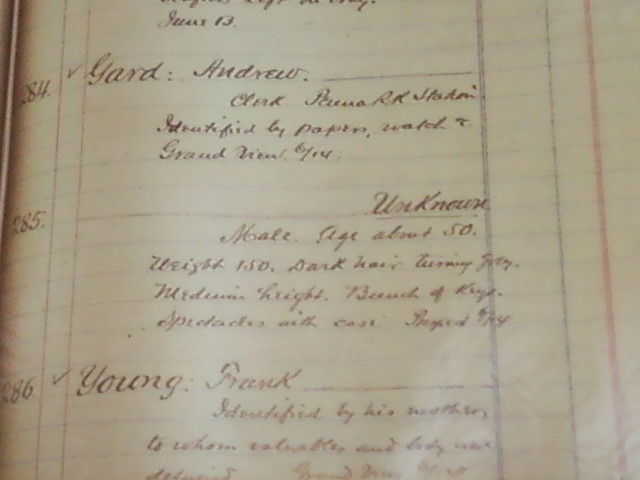 June 13.
284. ✓ Gard: Andrew.
Clerk Penna RR Station.
Identified by papers, watch &
Grand View 6/14.
285. Unknown
Male. Age about 50.
Weight 150. Dark hair turning grey.
Medium height. Bunch of keys.
Spectacles with case. 6/14
286 ✓ Young: Frank
Identified by his mother,
to whom valuables and body were
delivered. Grand View